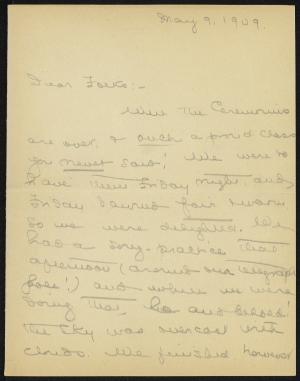 May 9, 1909.
Dear Folks:-
Well The Ceremonies
are over, & such a proud class
you never saw! We were to
have them Friday night, and
Friday dawned fair & warm
So we were delighted. We
had a song-practice that
afternoon (around our telegraph
pole!) and while we were
doing that, lo and behold!
the sky was overcast with
clouds. We finished however